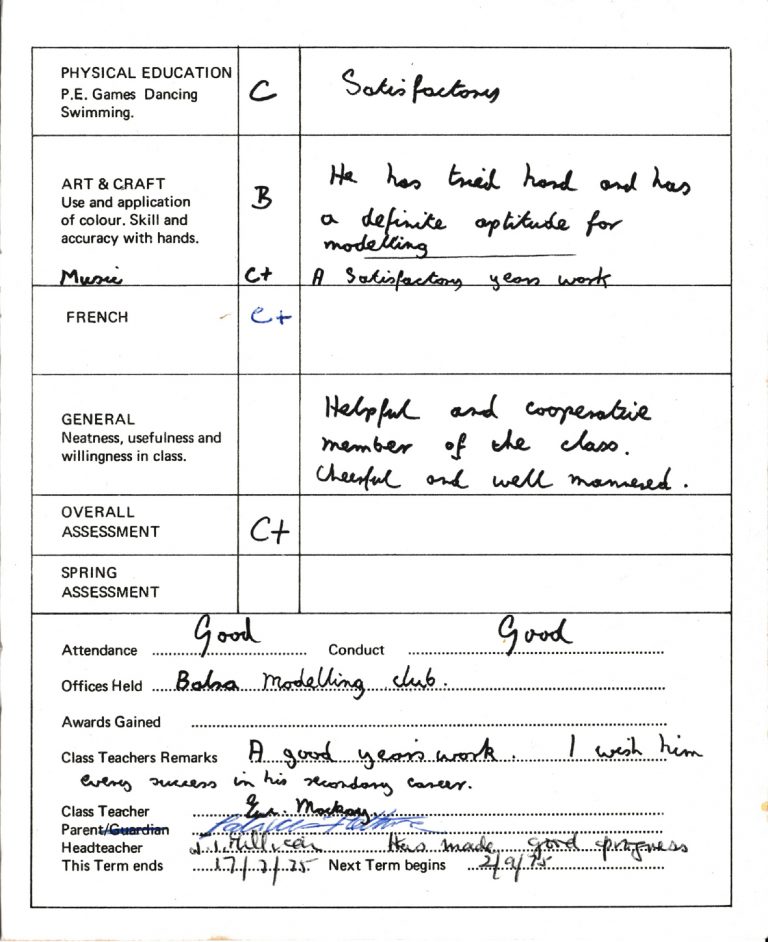 PHYSICAL EDUCATION
P.E. Games Dancing
Swimming.
C
Satisfactory
ART & CRAFT
Use and application
of colour. Skill and
accuracy with hands.
B
He has tried hard and has
a definite aptitude for
modelling
Music C+ A Satisfactory years work
FRENCH C+
GENERAL
Neatness, usefulness and
willingness in class.
Helpful and cooperative
member of the class.
Cheerful and well mannered.
OVERALL
ASSESSMENT
C+
SPRING
ASSESSMENT
Attendance Good Conduct Good
Offices Held Balsa Modelling club.
Awards Gained
Class Teachers Remarks A good year's work. I wish him
every success in his secondary career.
Class Teacher Mackay
Parent/Guardian
Headteacher Has made good progress
This Term ends 17/7/75 Next Term begins 2/9/75